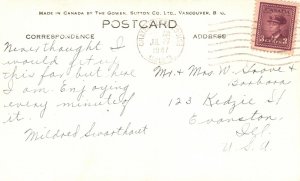 MADE IN CANADA BY THE GOWEN, SUTTON CO. LTD., VANCOUVER, B.C.
POSTCARD
CORRESPONDENCE
ADDRESS
Never thought I
would get up
this far but here
I am. Enjoying
every minute of
it.
Mildred Swarthout
Mr & Mrs W. Grove &
Barbara
123 Kedzie St
Evanston
Ill.
U.S.A
JUL
3 3